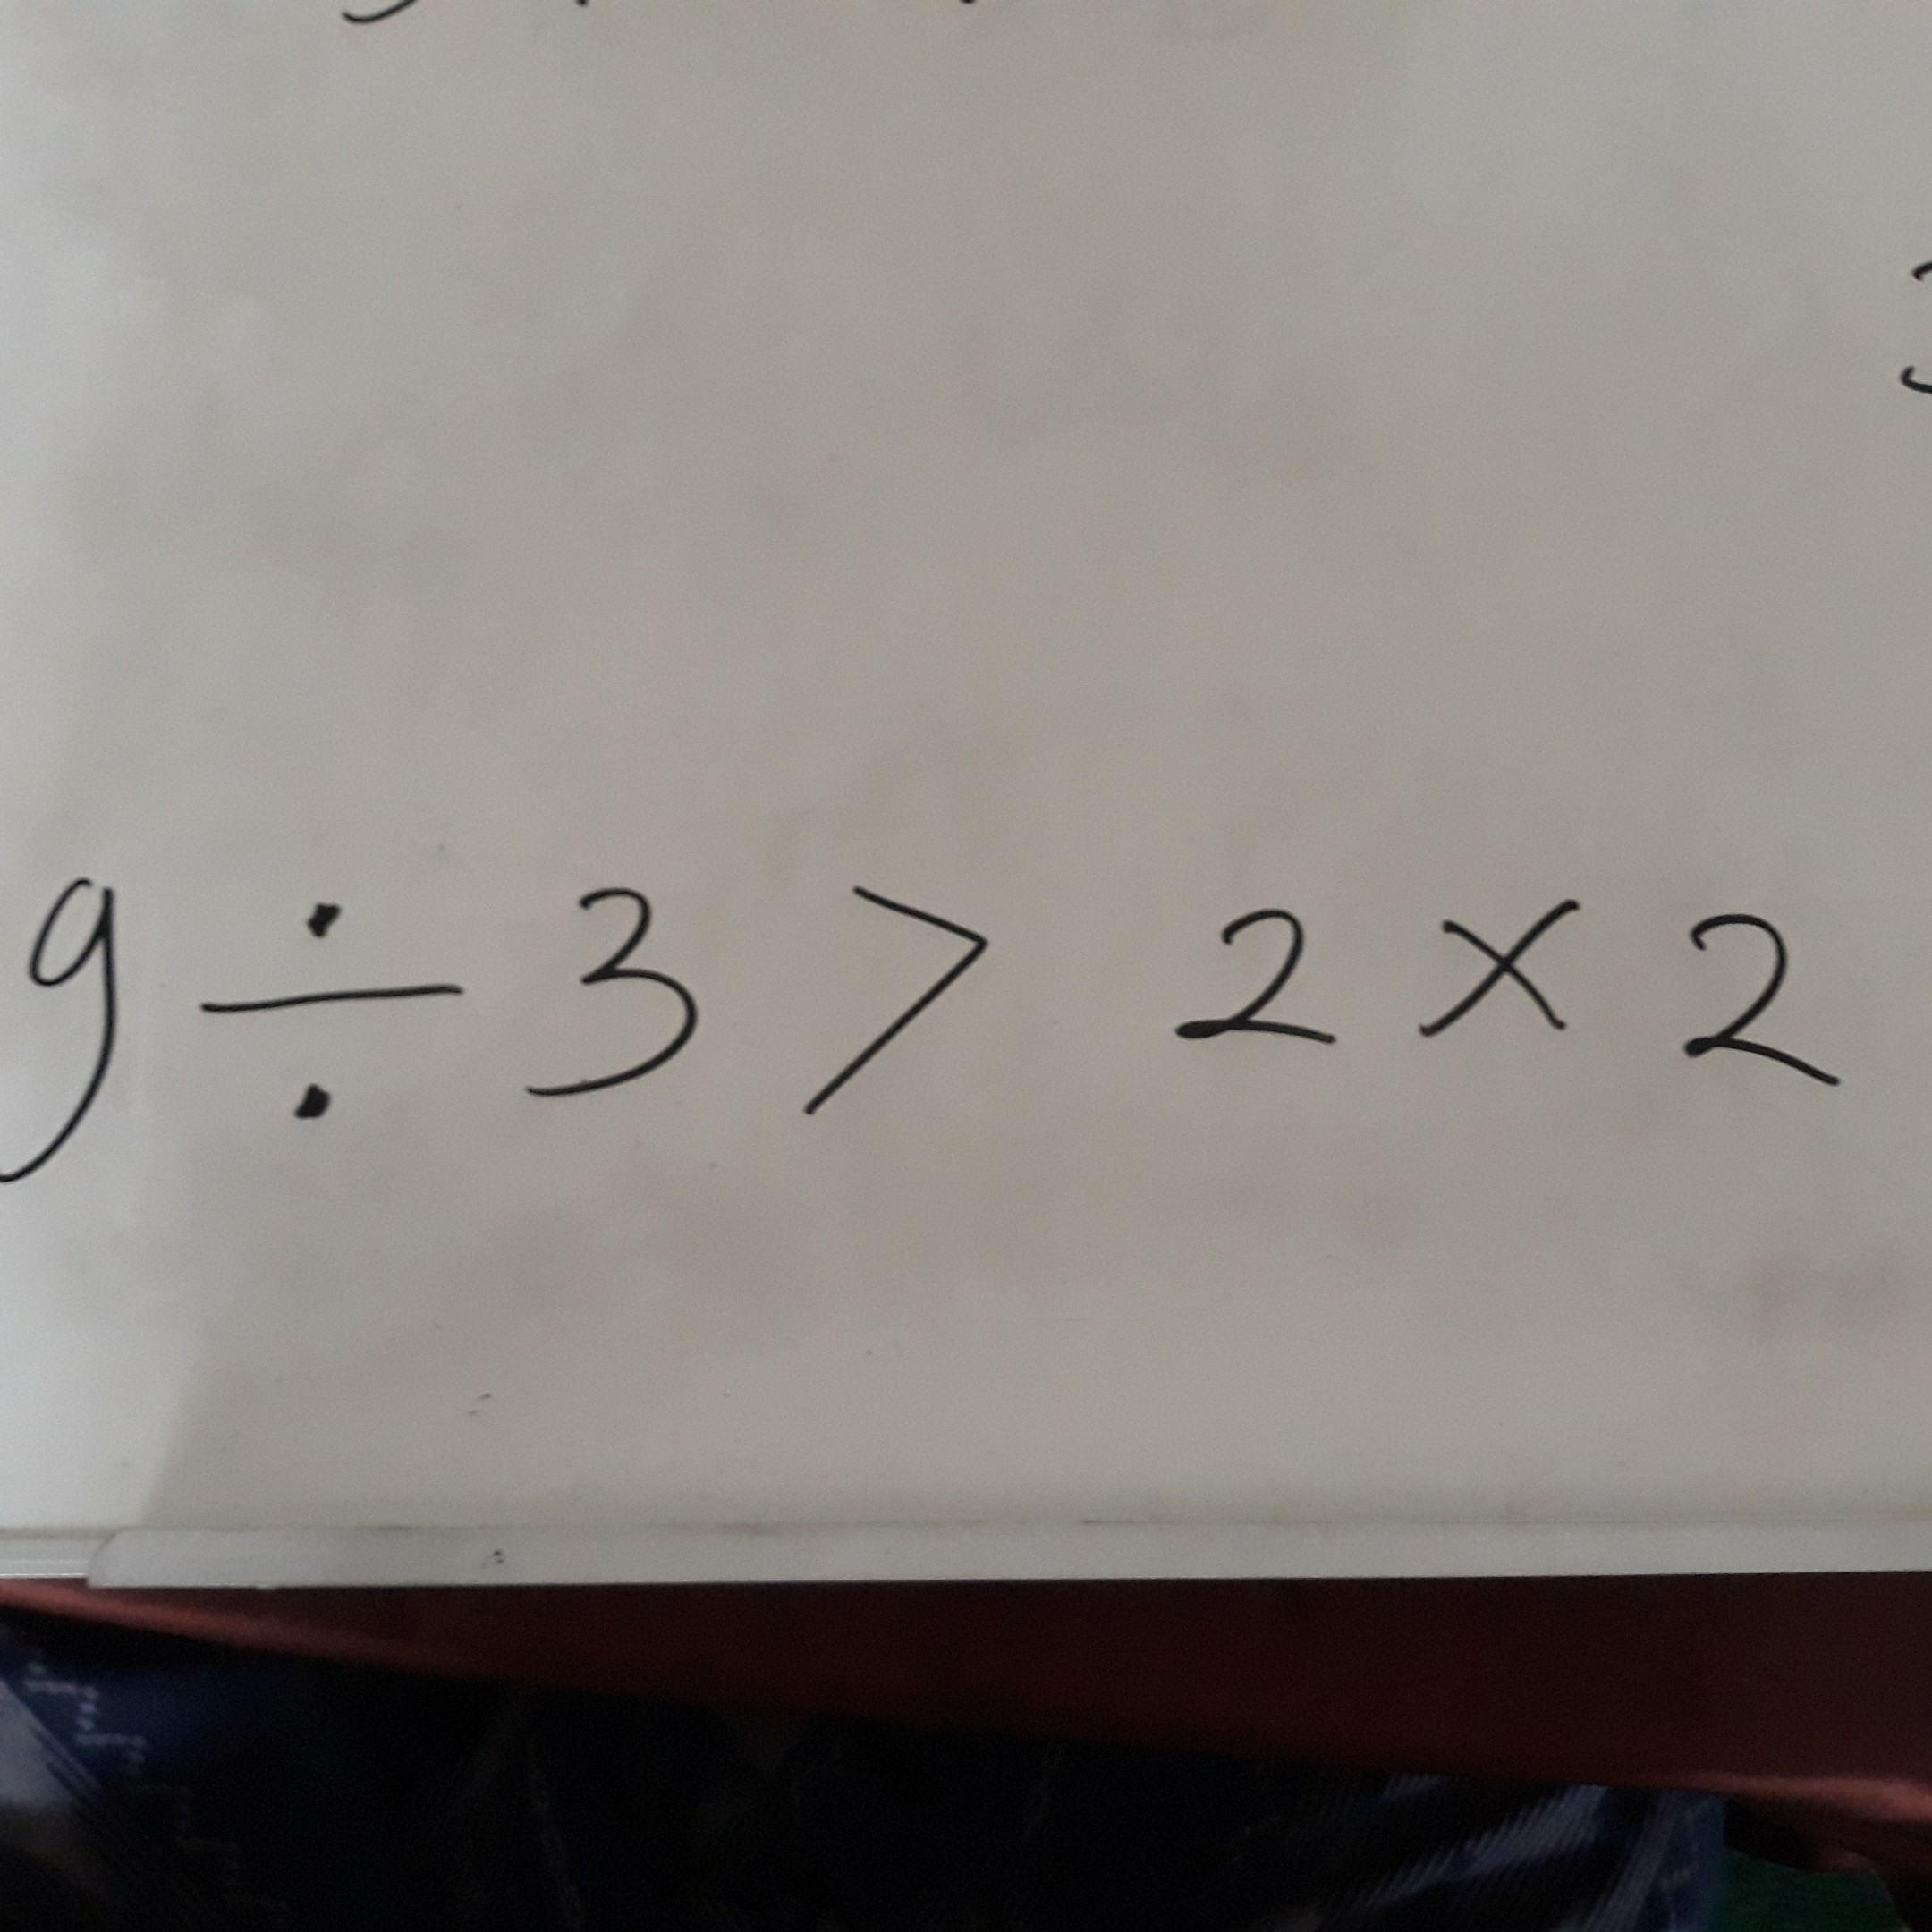 9 ÷ 3 > 2 × 2